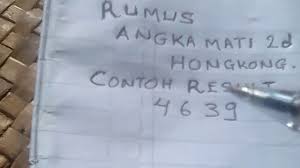 RUMUS
ANGKA MATI 2d
HONGKONG.
CONTOH RESULT
4639